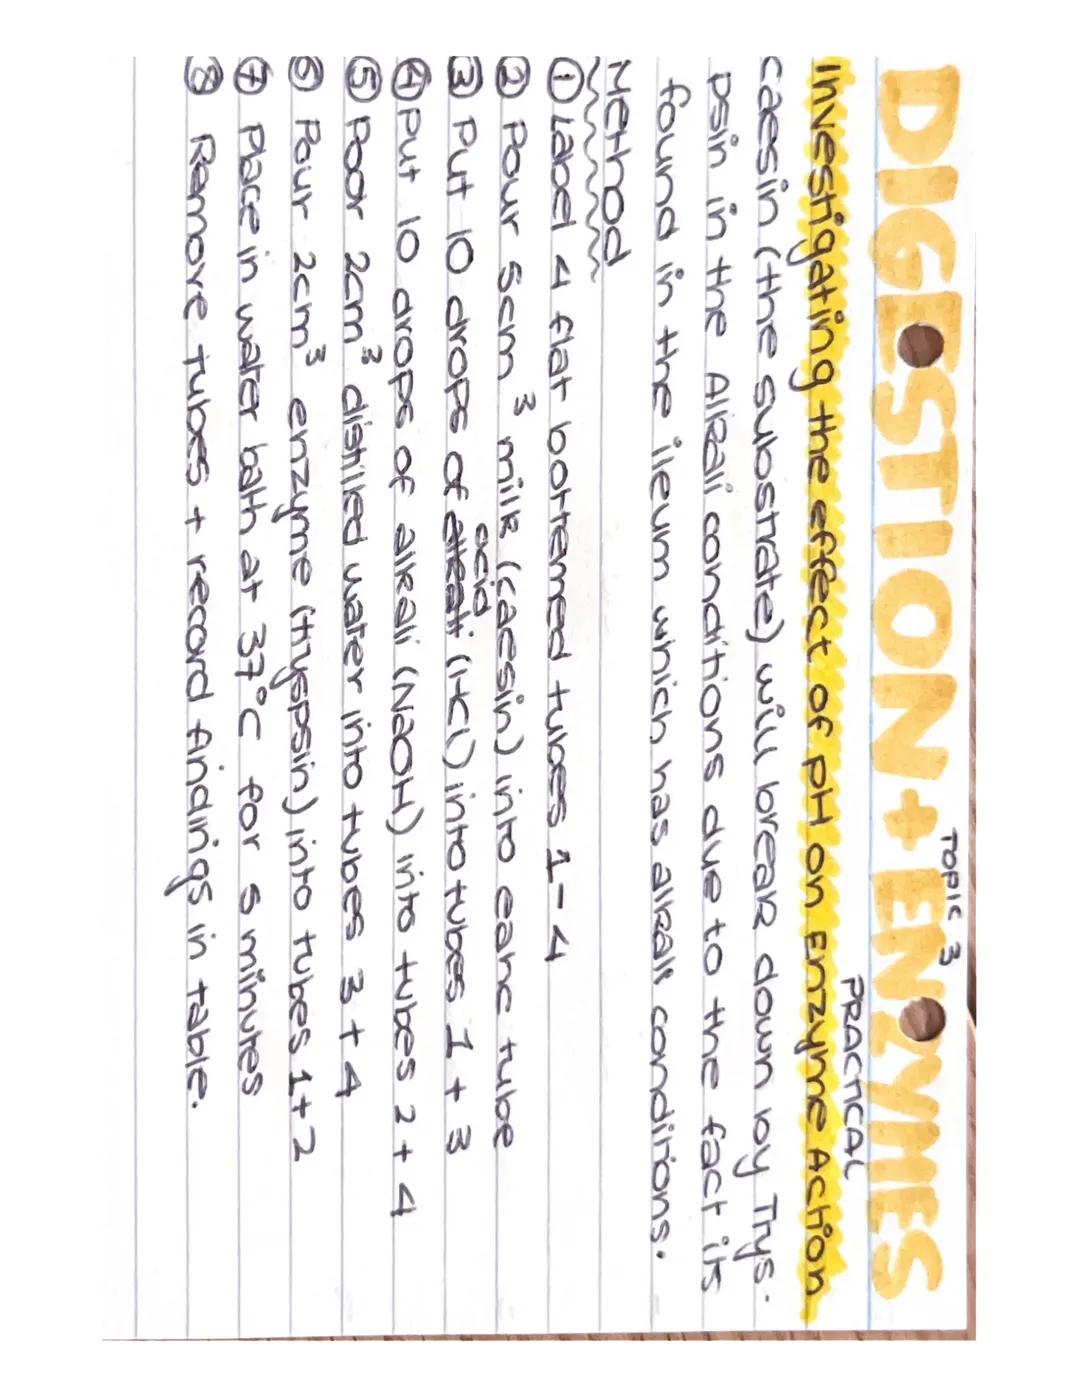 TOPIC 3
DIGESTION + ENZYMES
PRACTICAL
Investigating the effect of pH on Enzyme Action
caesin (the substrate) will break down by Tryps-
psin in the Alkali conditions due to the fact its
found in the ileum which has alkali conditions.
Method
① Label 4 flat bottemed tubes 1-4
② Pour 5cm³ milk (caesin) into eanc tube
acid
③ Put 10 drops of alkali (HCl) into tubes 1 + 3
④ Put 10 drops of alkali (NaOH) into tubes 2 + 4
⑤ Poor 2cm³ distilled water into tubes 3 + 4
⑥ Pour 2cm³ enzyme (tryspsin) into tubes 1+2
⑦ Place in water bath at 37°C for 5 minutes
⑧ Remove tubes + record findings in table.